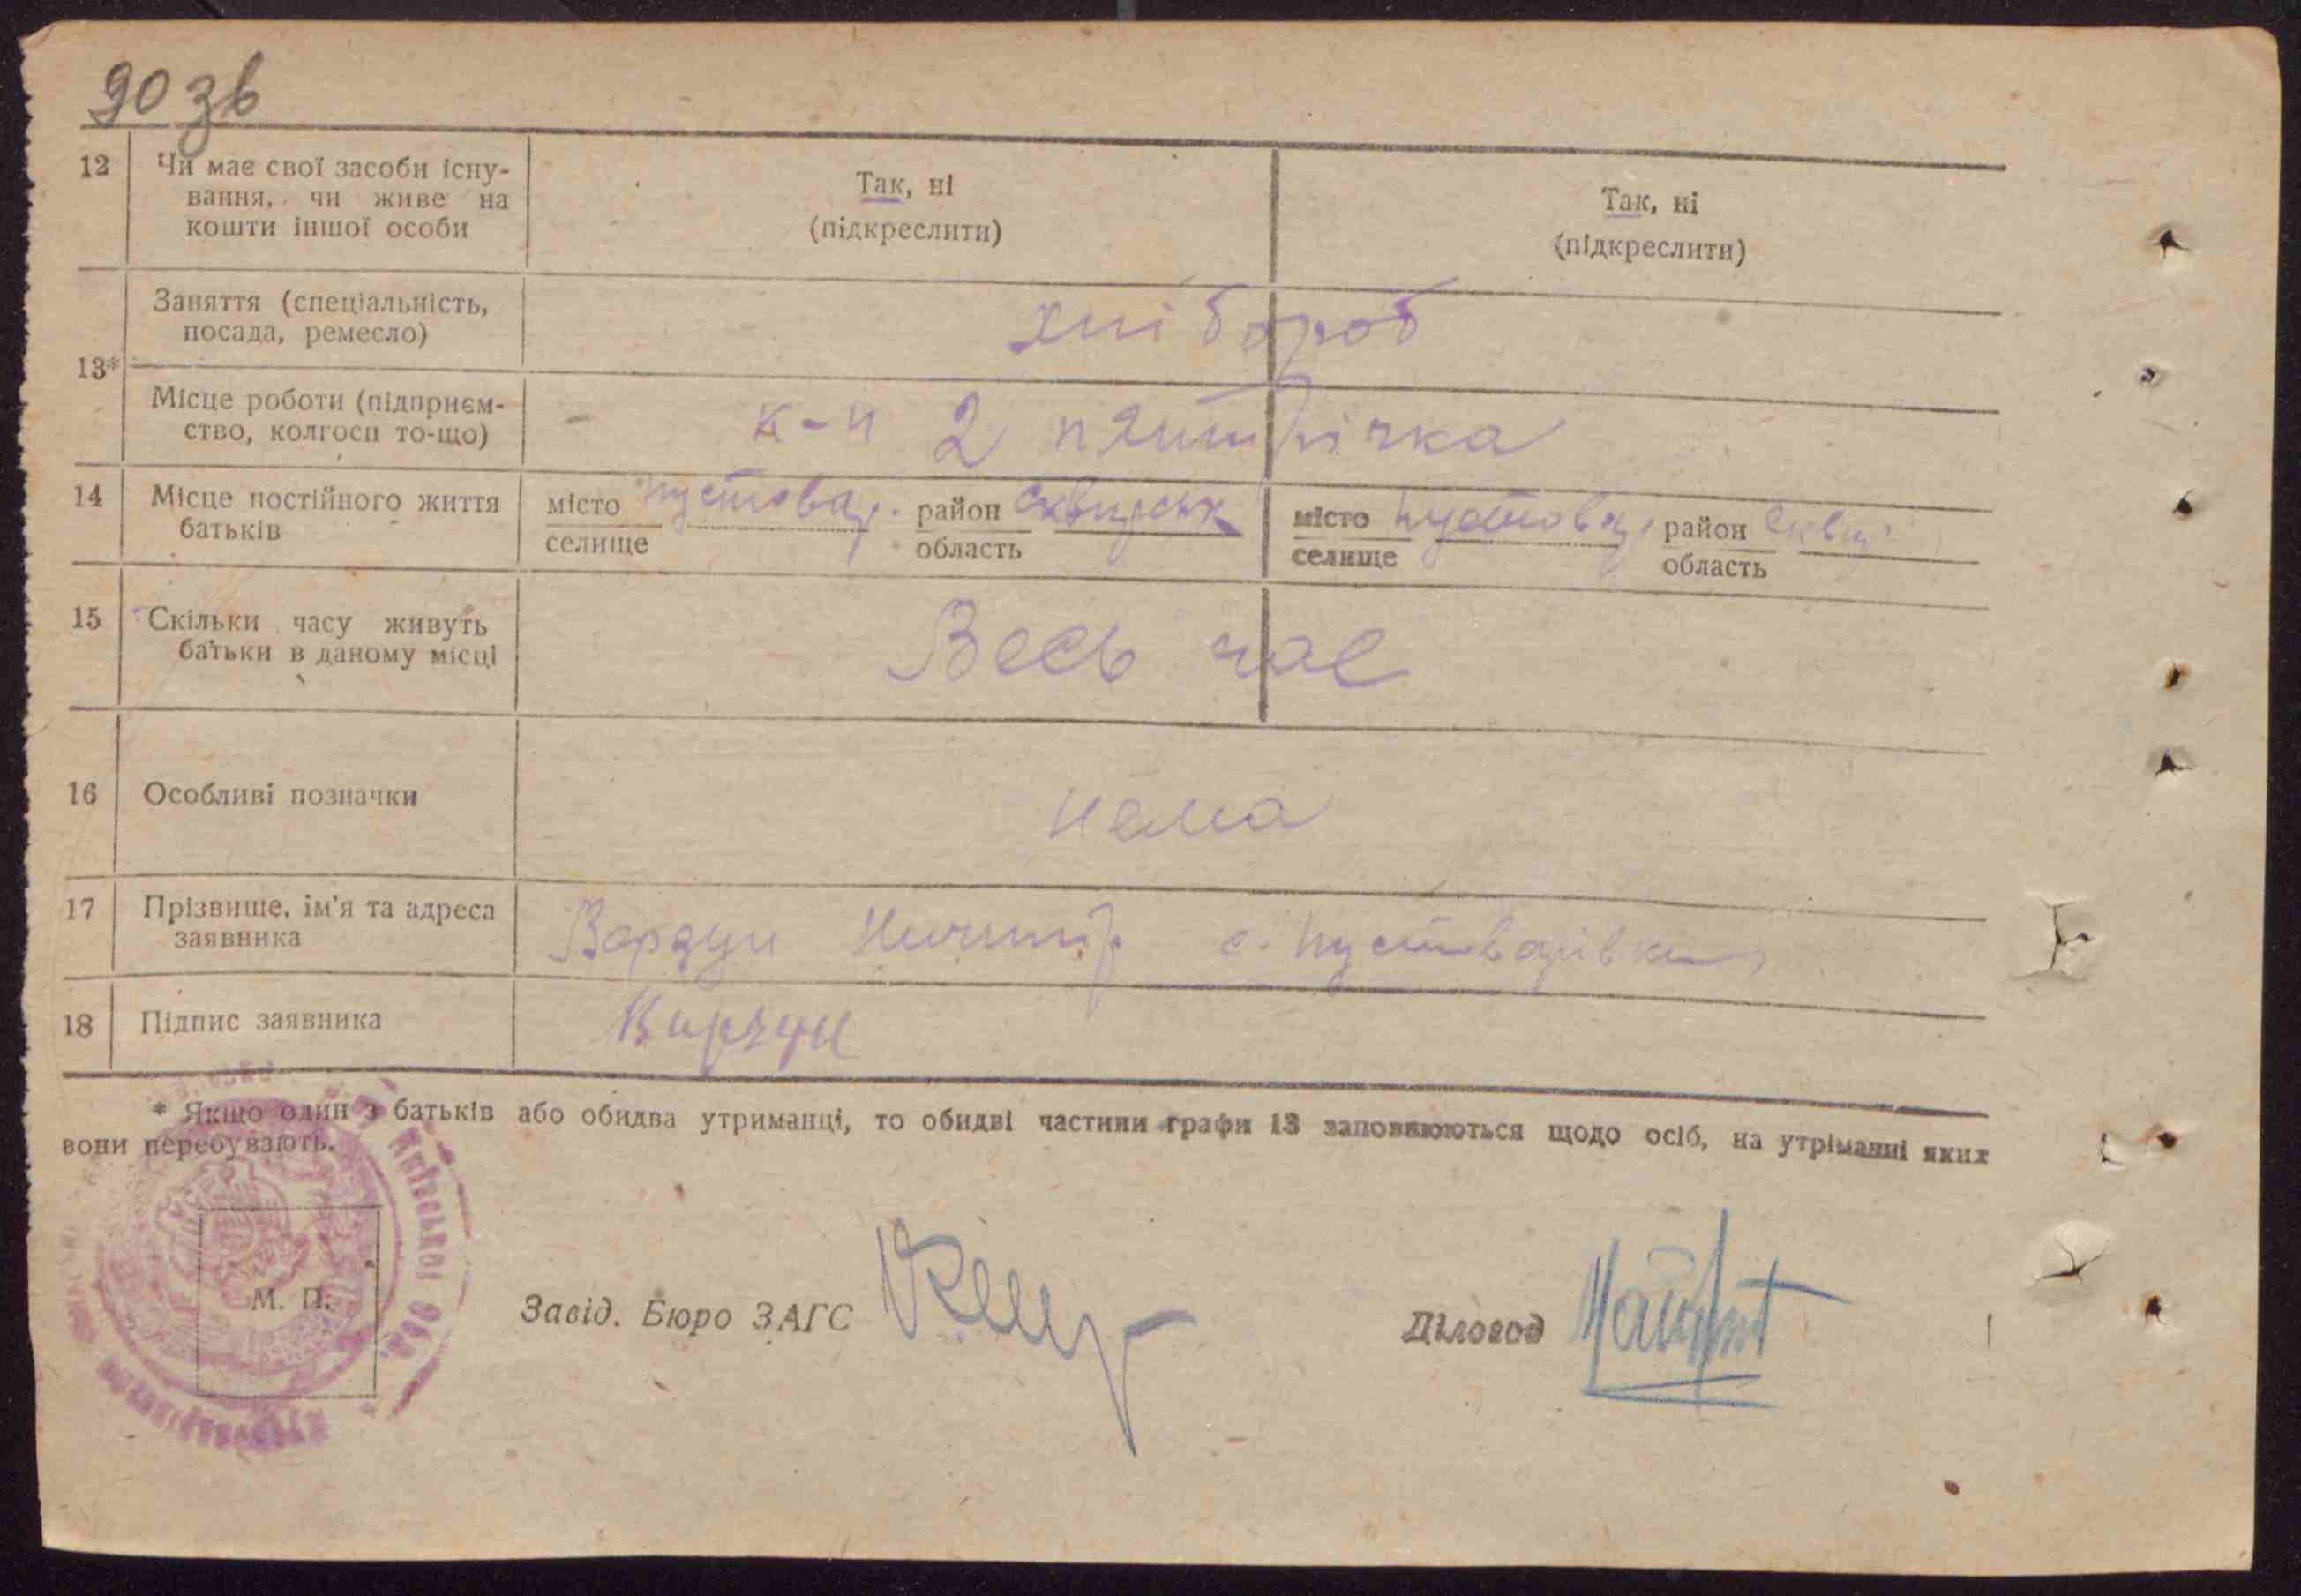 90 зв
12 Чи має свої засоби існу-
вання, чи живе на
кошти іншої особи
Так, ні
(підкреслити)
Так, ні
(підкреслити)
13* Заняття (спеціальність,
посада, ремесло)
хлібороб
Місце роботи (підприєм-
ство, колгосп то-що)
к-п 2 пятирічка
14 Місце постійного життя
батьків
місто Пустовар. район Сквирськ
селище область
місто Пустовар. район Сквир
селище область
15 Скільки часу живуть
батьки в даному місці
Весь час
16 Особливі позначки
нема
17 Прізвище, ім'я та адреса
заявника
с. Пустоварівка
18 Підпис заявника
* Якщо один з батьків або обидва утриманці, то обидві частини графи 13 заповнюються щодо осіб, на утріманні яких
вони перебувають.
Київської Обл.
М. П.
Завід. Бюро ЗАГС
Діловод